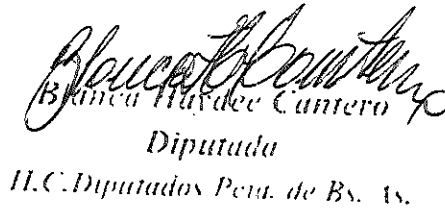 Blanca Haydee Cantero
Diputada
H.C.Diputados Pcia. de Bs. As.